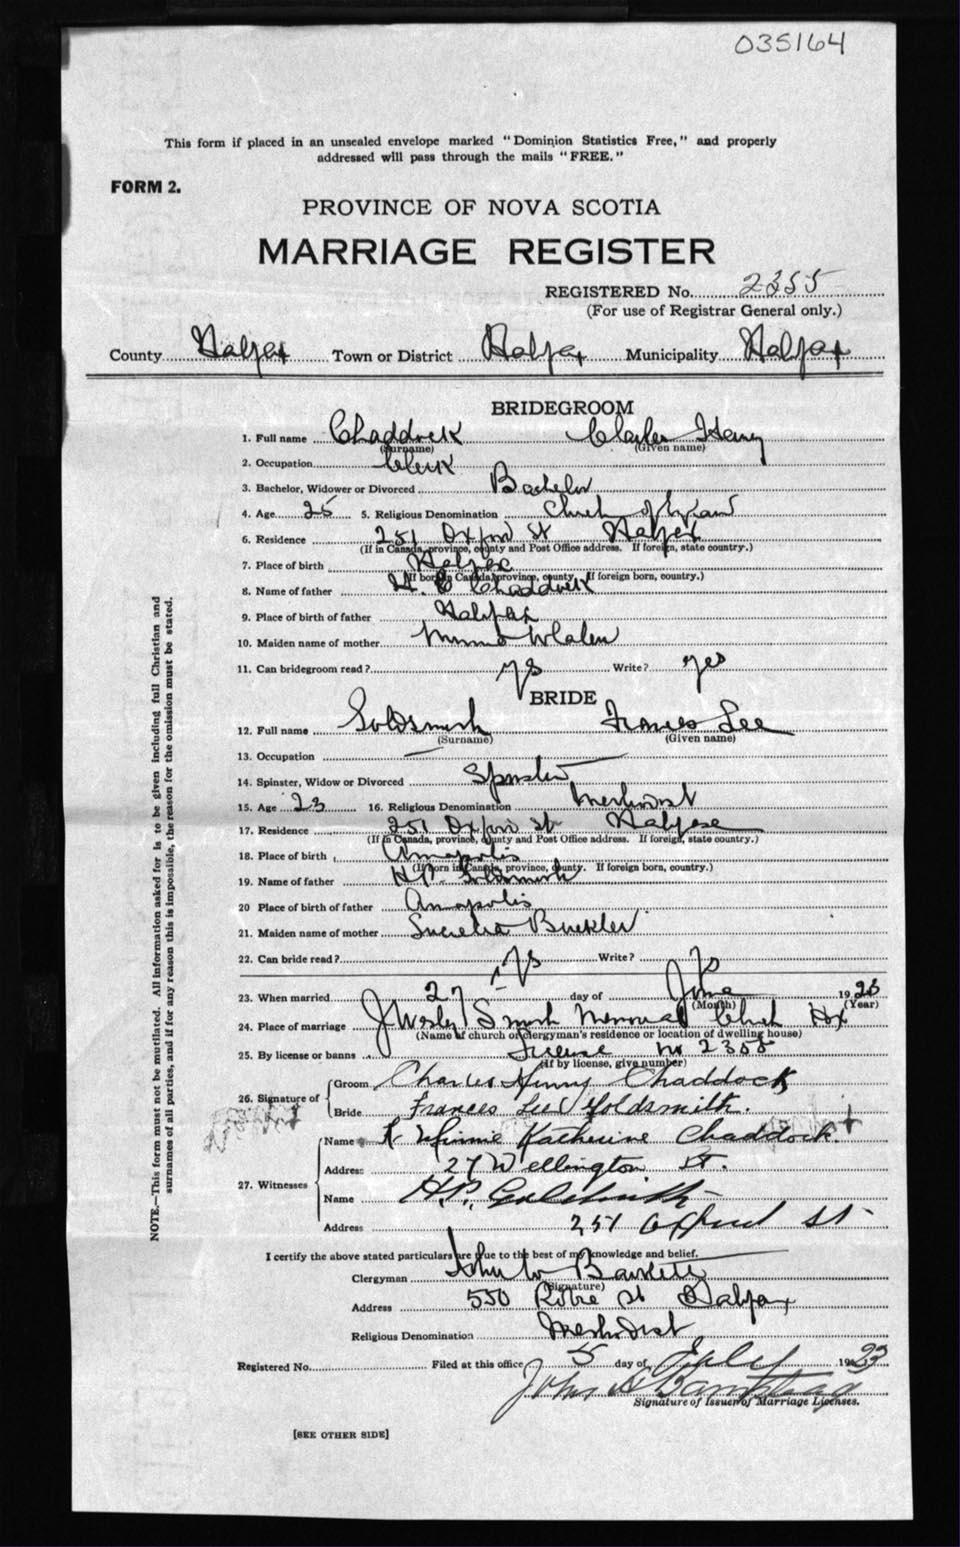 035164
This form if placed in an unsealed envelope marked "Dominion Statistics Free," and properly
addressed will pass through the mails "FREE."
FORM 2.
PROVINCE OF NOVA SCOTIA
MARRIAGE REGISTER
REGISTERED No. 2355
(For use of Registrar General only.)
County Halifax Town or District Halifax Municipality Halifax
BRIDEGROOM
1. Full name Chaddock Charles Henry
(Surname) (Given name)
2. Occupation Clerk
3. Bachelor, Widower or Divorced Bachelor
4. Age 25 5. Religious Denomination Church of England
6. Residence 251 Oxford St Halifax
(If in Canada, province, county and Post Office address. If foreign, state country.)
7. Place of birth Halifax
(If born in Canada, province, county. If foreign born, country.)
8. Name of father H. Chaddock
9. Place of birth of father Halifax
10. Maiden name of mother Whalen
11. Can bridegroom read? yes Write? yes
BRIDE
12. Full name Goldsmith Frances Lee
(Surname) (Given name)
13. Occupation —
14. Spinster, Widow or Divorced Spinster
15. Age 23 16. Religious Denomination Methodist
17. Residence 251 Oxford St Halifax
(If in Canada, province, county and Post Office address. If foreign, state country.)
18. Place of birth Annapolis
(If born in Canada, province, county. If foreign born, country.)
19. Name of father H.P. Goldsmith
20 Place of birth of father Annapolis
21. Maiden name of mother Buckler
22. Can bride read? yes Write? yes
23. When married 27 day of June 1923
(Month) (Year)
24. Place of marriage J Wesley Smith Memorial Church Hfx
(Name of church or clergyman's residence or location of dwelling house)
25. By license or banns License No 2355
(If by license, give number)
26. Signature of Groom Charles Henry Chaddock
Bride Frances Lee Goldsmith.
27. Witnesses Name Minnie Katherine Chaddock
Address 27 Wellington St.
Name H.P. Goldsmith
Address 251 Oxford St
I certify the above stated particulars are true to the best of my knowledge and belief.
Clergyman
(Signature)
Address 550 Robie St Halifax
Religious Denomination Methodist
Registered No. Filed at this office 5 day of July 1923
John
Signature of Issuer of Marriage Licenses.
[SEE OTHER SIDE]
NOTE.—This form must not be mutilated. All information asked for is to be given including full Christian and
surnames of all parties, and if for any reason this is impossible, the reason for the omission must be stated.